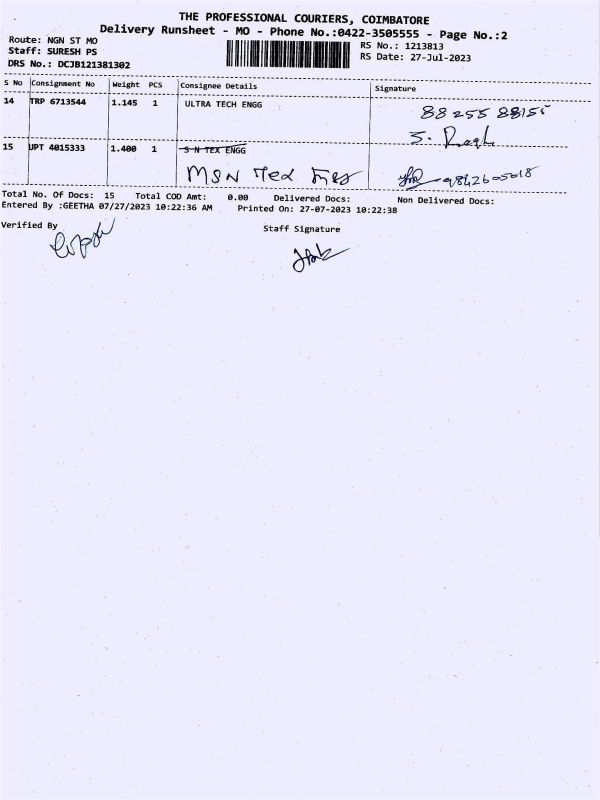 THE PROFESSIONAL COURIERS, COIMBATORE
Delivery Runsheet - MO - Phone No.:0422-3505555 - Page No.:2
Route: NGN ST MO
Staff: SURESH PS
DRS No.: DCJB121381302
RS No.: 1213813
RS Date: 27-Jul-2023
S No Consignment No Weight PCS Consignee Details Signature
14 TRP 6713544 1.145 1 ULTRA TECH ENGG 88255 88155
S.
15 JPT 4015333 1.400 1 S N TEX ENGG
MSN Tex 9842605018
Total No. Of Docs: 15 Total COD Amt: 0.00 Delivered Docs: Non Delivered Docs:
Entered By :GEETHA 07/27/2023 10:22:36 AM Printed On: 27-07-2023 10:22:38
Verified By
Staff Signature